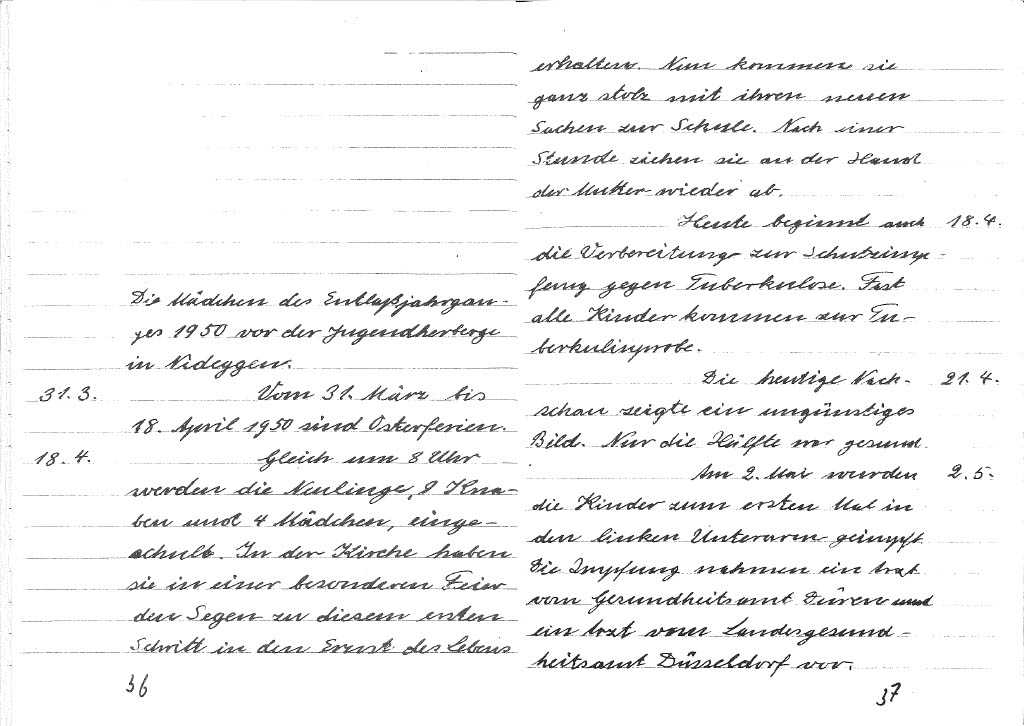 Die Mädchen des Entlaßjahrgan-
ges 1950 vor der Jugendherberge
in Nideggen.
31.3. Vom 31. März bis
18. April 1950 sind Osterferien.
18.4. Gleich um 8 Uhr
werden die Neulinge, 8 Kna-
ben und 4 Mädchen, einge-
schult. In der Kirche haben
sie in einer besonderen Feier
den Segen zu diesem ersten
Schritt in den Ernst des Lebens
36
erhalten. Nun kommen sie
ganz stolz mit ihren neuen
Sachen zur Schule. Nach einer
Stunde ziehen sie an der Hand
der Mutter wieder ab.
Heute beginnt auch 18.4.
die Verbereitung zur Schutzimp-
fung gegen Tuberkulose. Fast
alle Kinder kommen zur Tu-
berkulinprobe.
Die heutige Nach- 21.4.
schau zeigte ein ungünstiges
Bild. Nur die Hälfte war gesund.
Am 2. Mai wurden 2.5.
die Kinder zum ersten Mal in
den linken Unterarm geimpft.
Die Impfung nahmen ein Arzt
vom Gesundheitsamt Düren und
ein Arzt vom Landesgesund-
heitsamt Düsseldorf vor.
37